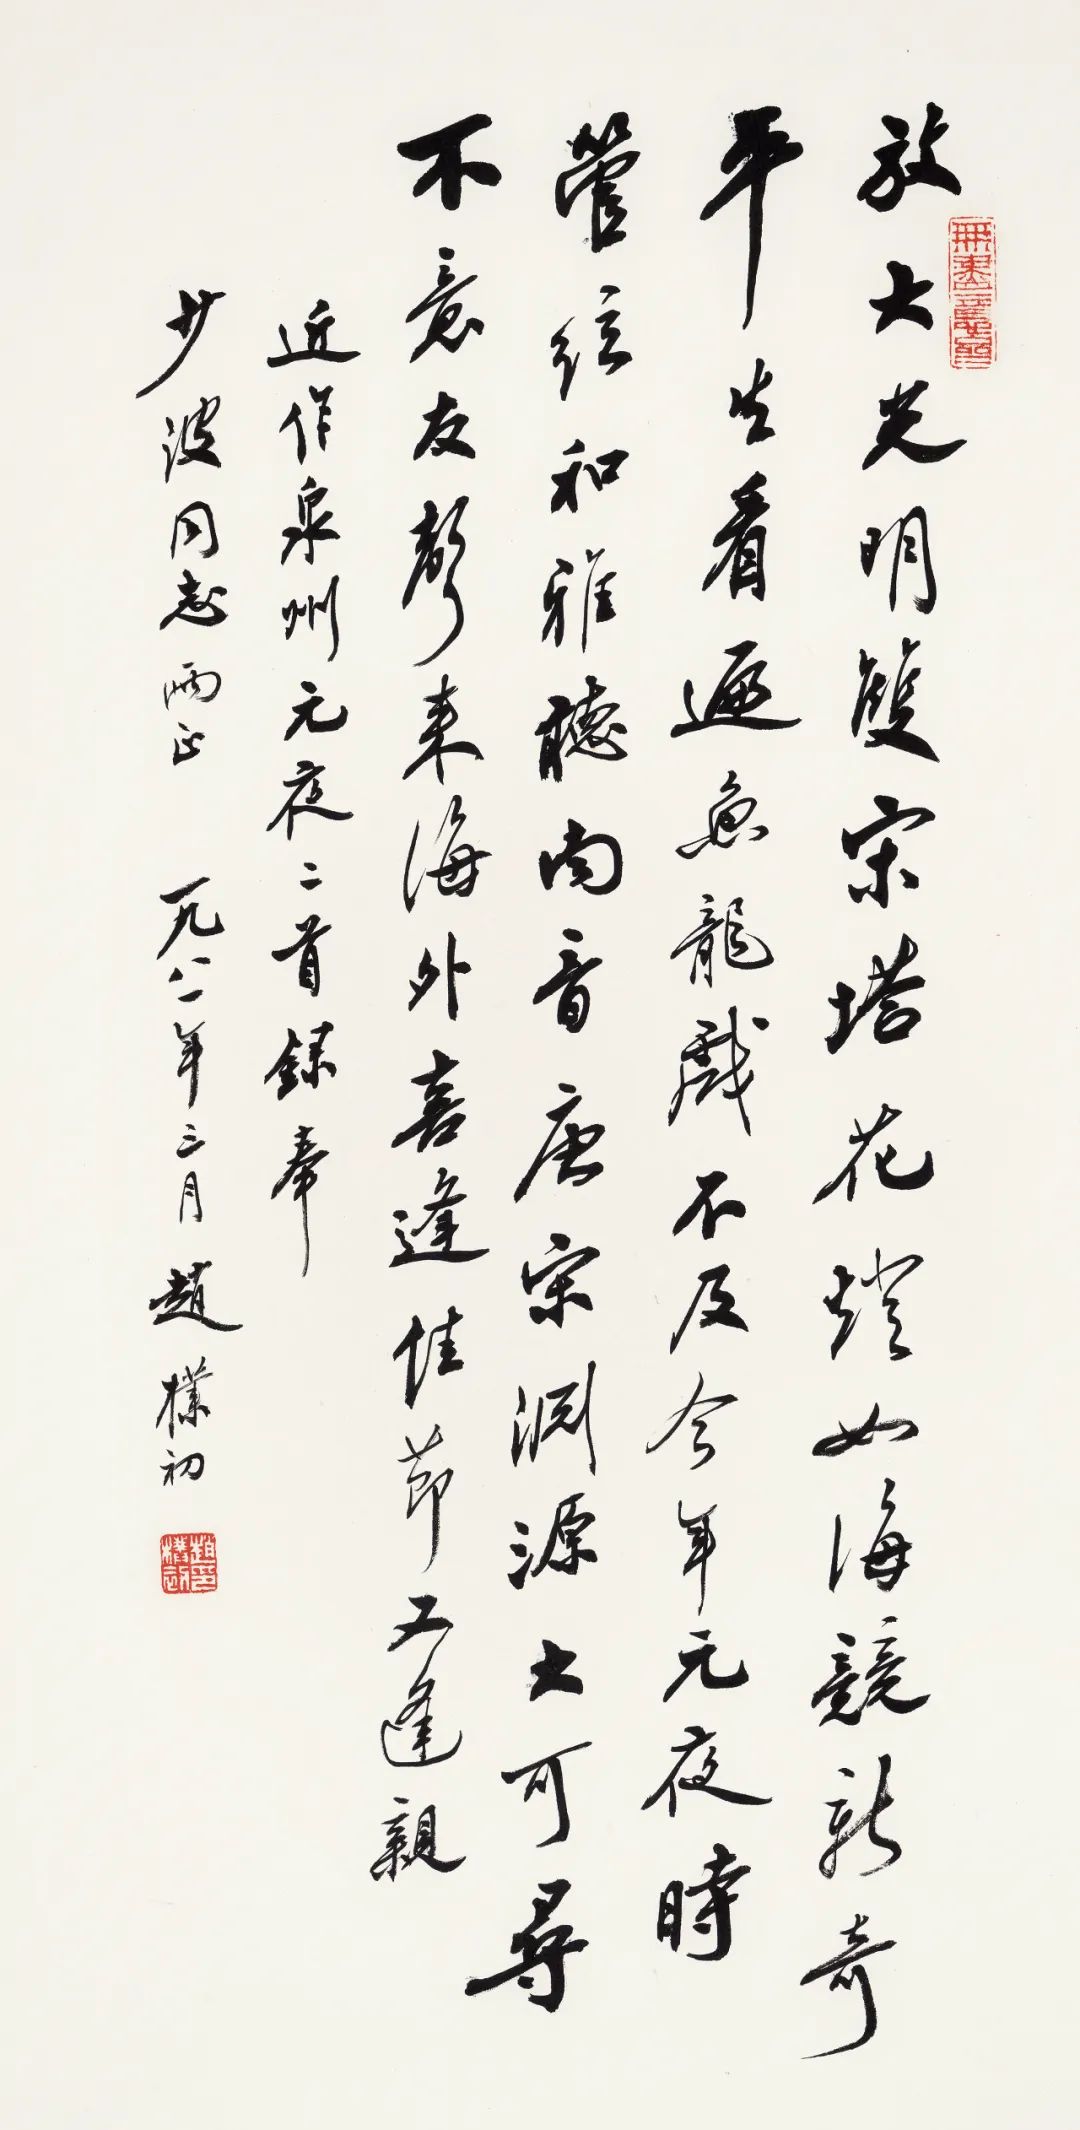 無盡意齋
放大光明雙宋塔花燈如海競新奇
平生看遍魚龍戲不及今年元夜時
管絃和雅聽南音唐宋淵源大可尋
不意友聲来海外喜逢佳節又逢親
近作泉州元夜二首錄奉
少波同志兩正 一九八一年三月 趙樸初
趙樸初印